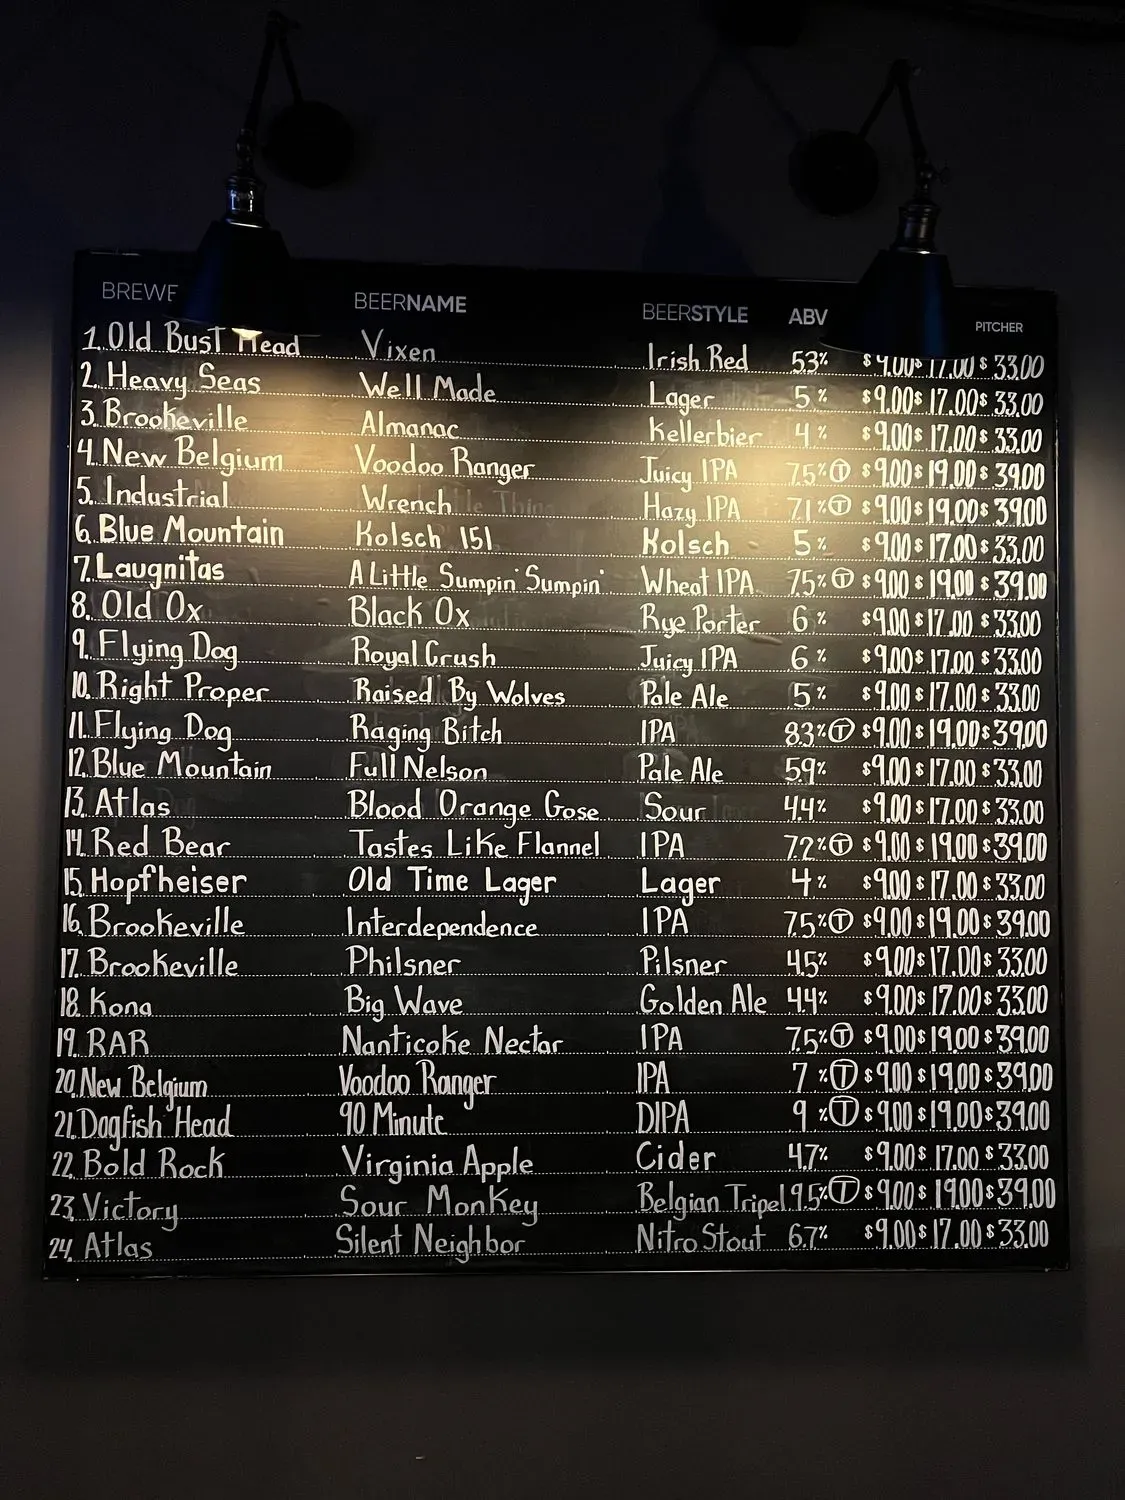 BREWE BEERNAME BEERSTYLE ABV PITCHER
1. Old Bust Head Vixen Irish Red 53% $9.00 $17.00 $33.00
2. Heavy Seas Well Made Lager 5% $9.00 $17.00 $33.00
3. Brookeville Almanac Kellerbier 4% $9.00 $17.00 $33.00
4. New Belgium Voodoo Ranger Juicy IPA 7.5% Ⓣ $9.00 $19.00 $39.00
5. Industrial Wrench Hazy IPA 7.1% Ⓣ $9.00 $19.00 $39.00
6. Blue Mountain Kolsch 151 Kolsch 5% $9.00 $17.00 $33.00
7. Laugnitas A Little Sumpin' Sumpin' Wheat IPA 7.5% Ⓣ $9.00 $19.00 $39.00
8. Old Ox Black Ox Rye Porter 6% $9.00 $17.00 $33.00
9. Flying Dog Royal Crush Juicy IPA 6% $9.00 $17.00 $33.00
10. Right Proper Raised By Wolves Pale Ale 5% $9.00 $17.00 $33.00
11. Flying Dog Raging Bitch IPA 8.3% Ⓣ $9.00 $19.00 $39.00
12. Blue Mountain Full Nelson Pale Ale 5.9% $9.00 $17.00 $33.00
13. Atlas Blood Orange Gose Sour 4.4% $9.00 $17.00 $33.00
14. Red Bear Tastes Like Flannel IPA 7.2% Ⓣ $9.00 $19.00 $39.00
15. Hopfheiser Old Time Lager Lager 4% $9.00 $17.00 $33.00
16. Brookeville Interdependence IPA 7.5% Ⓣ $9.00 $19.00 $39.00
17. Brookeville Philsner Pilsner 4.5% $9.00 $17.00 $33.00
18. Kona Big Wave Golden Ale 4.4% $9.00 $17.00 $33.00
19. RAR Nanticoke Nectar IPA 7.5% Ⓣ $9.00 $19.00 $39.00
20. New Belgium Voodoo Ranger IPA 7% Ⓣ $9.00 $19.00 $39.00
21. Dogfish Head 90 Minute DIPA 9% Ⓣ $9.00 $19.00 $39.00
22. Bold Rock Virginia Apple Cider 4.7% $9.00 $17.00 $33.00
23. Victory Sour Monkey Belgian Tripel 9.5% Ⓣ $9.00 $19.00 $39.00
24. Atlas Silent Neighbor Nitro Stout 6.7% $9.00 $17.00 $33.00